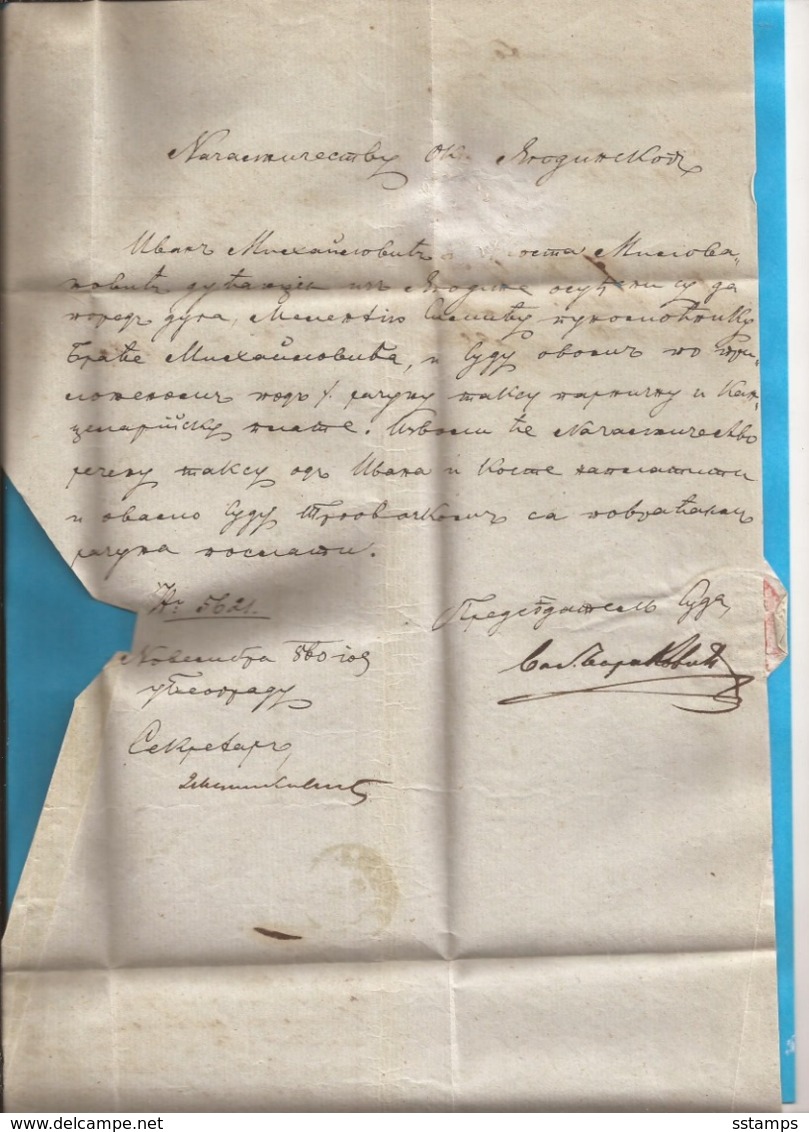 Началничеству Ок. Ягодинскогъ
Иванъ Михайловићъ и Коста Милова-
новићъ дућанџіи изъ Ягодине осуђени су да
поредъ дуга, Мелентію пуномоћнику
Браће Михайловића, и Суду овомъ по при-
ложеномъ подъ ٪ рачуну таксу парничну и Кан-
целарійску плате. Изволи ће Началничество
речену таксу одъ Ивана и Косте наплатити
и овамо Суду Трговачкомъ са повраћаемъ
рачуна послати.
Nr 5621.
Предсѣдатель Суда,
Новембра 860 год
у Београду
Секретаръ,
sstamps